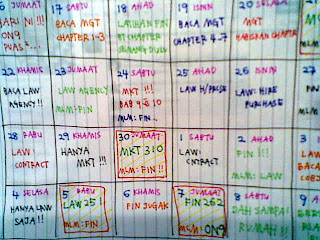 JUMAAT
HARI NI !!!
ON9
PUAS²...
17 SABTU
BACA MGT
CHAPTER 1-3
18 AHAD
LATIHAN FIN
BT CHAPTER
19 ISNIN
BACA MGT
CHAPTER 4-7
20 SELASA
MGT
HABISKAN CHAPTER
22 KHAMIS
BACA LAW
AGENCY !!
23 JUMAAT
LAW AGENCY
MLM: FIN
24 SABTU
MKT !!!
BAB 9 & 10
MLM: FIN
25 AHAD
LAW H/PRCSE
26 ISNIN
LAW: HIRE
PURCHASE
28 RABU
LAW:
CONTRACT
29 KHAMIS
HANYA
MKT !!!
30 JUMAAT
MKT 310
MLM: FIN!!
1 SABTU
LAW:
CNTRACT
2 AHAD
FIN !!!
MLM: LAW
LAW
BACA
4 SELASA
HANYA LAW
SAJA!!
5 RABU
LAW 251
MLM: FIN!!
6 KHAMIS
FIN JUGAK
7 JUMAAT
FIN 262
MLM: ON9
8 SABTU
DAH SAMPAI
RUMAH !!
9